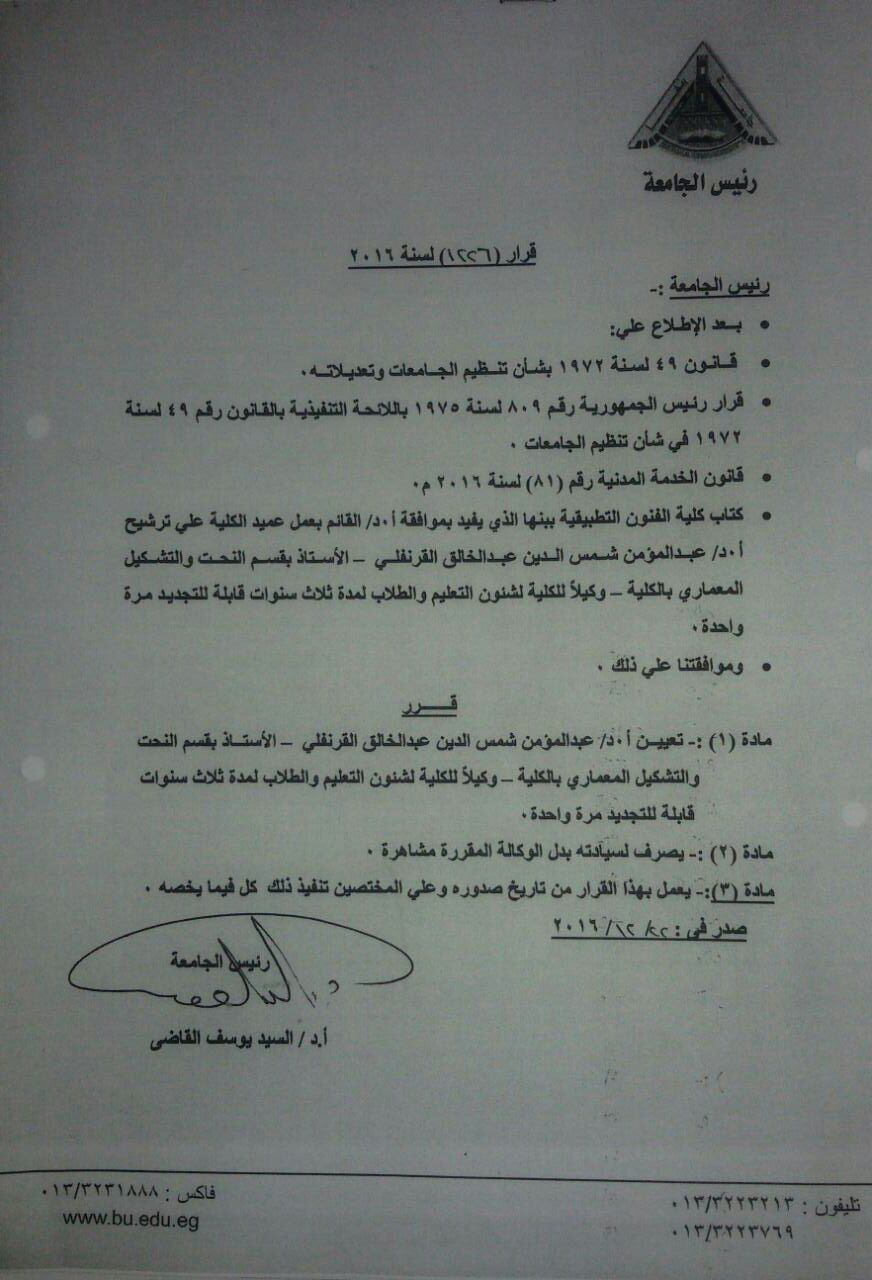 رئيس الجامعة
قرار (١٢٢٦) لسنة ٢٠١٦
رئيس الجامعة :-
• بعد الإطلاع علي:
• قانون ٤٩ لسنة ١٩٧٢ بشأن تنظيم الجامعات وتعديلاته.
• قرار رئيس الجمهورية رقم ٨٠٩ لسنة ١٩٧٥ باللائحة التنفيذية بالقانون رقم ٤٩ لسنة
١٩٧٢ في شأن تنظيم الجامعات .
• قانون الخدمة المدنية رقم (٨١) لسنة ٢٠١٦ م.
• كتاب كلية الفنون التطبيقية ببنها الذي يفيد بموافقة أ.د/ القائم بعمل عميد الكلية علي ترشيح
أ.د/ عبدالمؤمن شمس الدين عبدالخالق القرنفلي – الأستاذ بقسم النحت والتشكيل
المعماري بالكلية – وكيلاً للكلية لشئون التعليم والطلاب لمدة ثلاث سنوات قابلة للتجديد مرة
واحدة.
• وموافقتنا علي ذلك .
قـــرر
مادة (١) :- تعيين أ.د/ عبدالمؤمن شمس الدين عبدالخالق القرنفلي – الأستاذ بقسم النحت
والتشكيل المعماري بالكلية – وكيلاً للكلية لشئون التعليم والطلاب لمدة ثلاث سنوات
قابلة للتجديد مرة واحدة.
مادة (٢) :- يصرف لسيادته بدل الوكالة المقررة مشاهرة .
مادة (٣):- يعمل بهذا القرار من تاريخ صدوره وعلي المختصين تنفيذ ذلك كل فيما يخصه .
صدر فى : ٢٢/ ١٢/ ٢٠١٦
رئيس الجامعة
أ.د / السيد يوسف القاضى
تليفون : ٠١٣/٣٢٢٣٢١٣
٠١٣/٣٢٢٣٧٦٩
فاكس : ٠١٣/٣٢٣١٨٨٨
www.bu.edu.eg